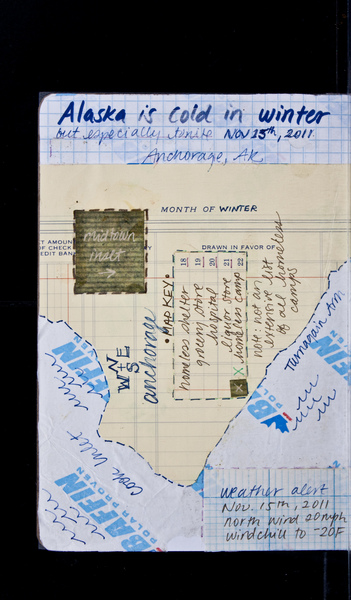 Alaska is cold in winter
but especially tonite Nov 15th, 2011
Anchorage, AK
MONTH OF WINTER
T AMOUN
OF CHECK
EDIT BAN
DRAWN IN FAVOR OF
midtown
inset
→
N
W + E
S
anchorage
• MAP KEY •
18 homeless shelter
19 grocery store
20 hospital
21 liquor store
22 homeless camp
X
X
not an
extensive list
of all homeless
camps
Turnagain Arm
Cook Inlet
BAFFIN
POLAR PROVEN
BAFFIN
POLAR PROVEN
BAFFIN
POLAR PROVEN
weather alert
Nov. 15th, 2011
north wind 20mph
windchill to -20F